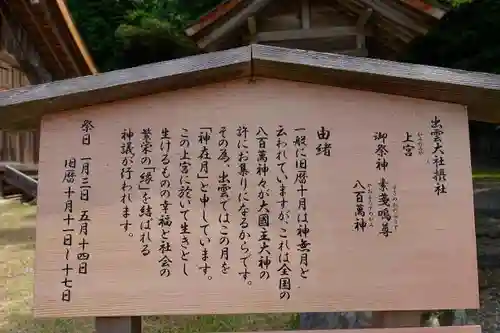 出雲大社摂社
かみのみや
上宮
御祭神　素戔嗚尊
すさのおのみこと
八百萬神
やおよろずのかみ
由緒
一般に旧暦十月は神無月と
云われていますが、これは全国の
八百萬神々が大國主大神の
許にお集りになるからです。
その為、出雲ではこの月を
「神在月」と申しています。
この上宮に於いて生きとし
生けるものの幸福と社会の
繁栄の「縁」を結ばれる
神議が行われます。
祭日　一月三日　五月十四日
旧暦十月十一日～十七日